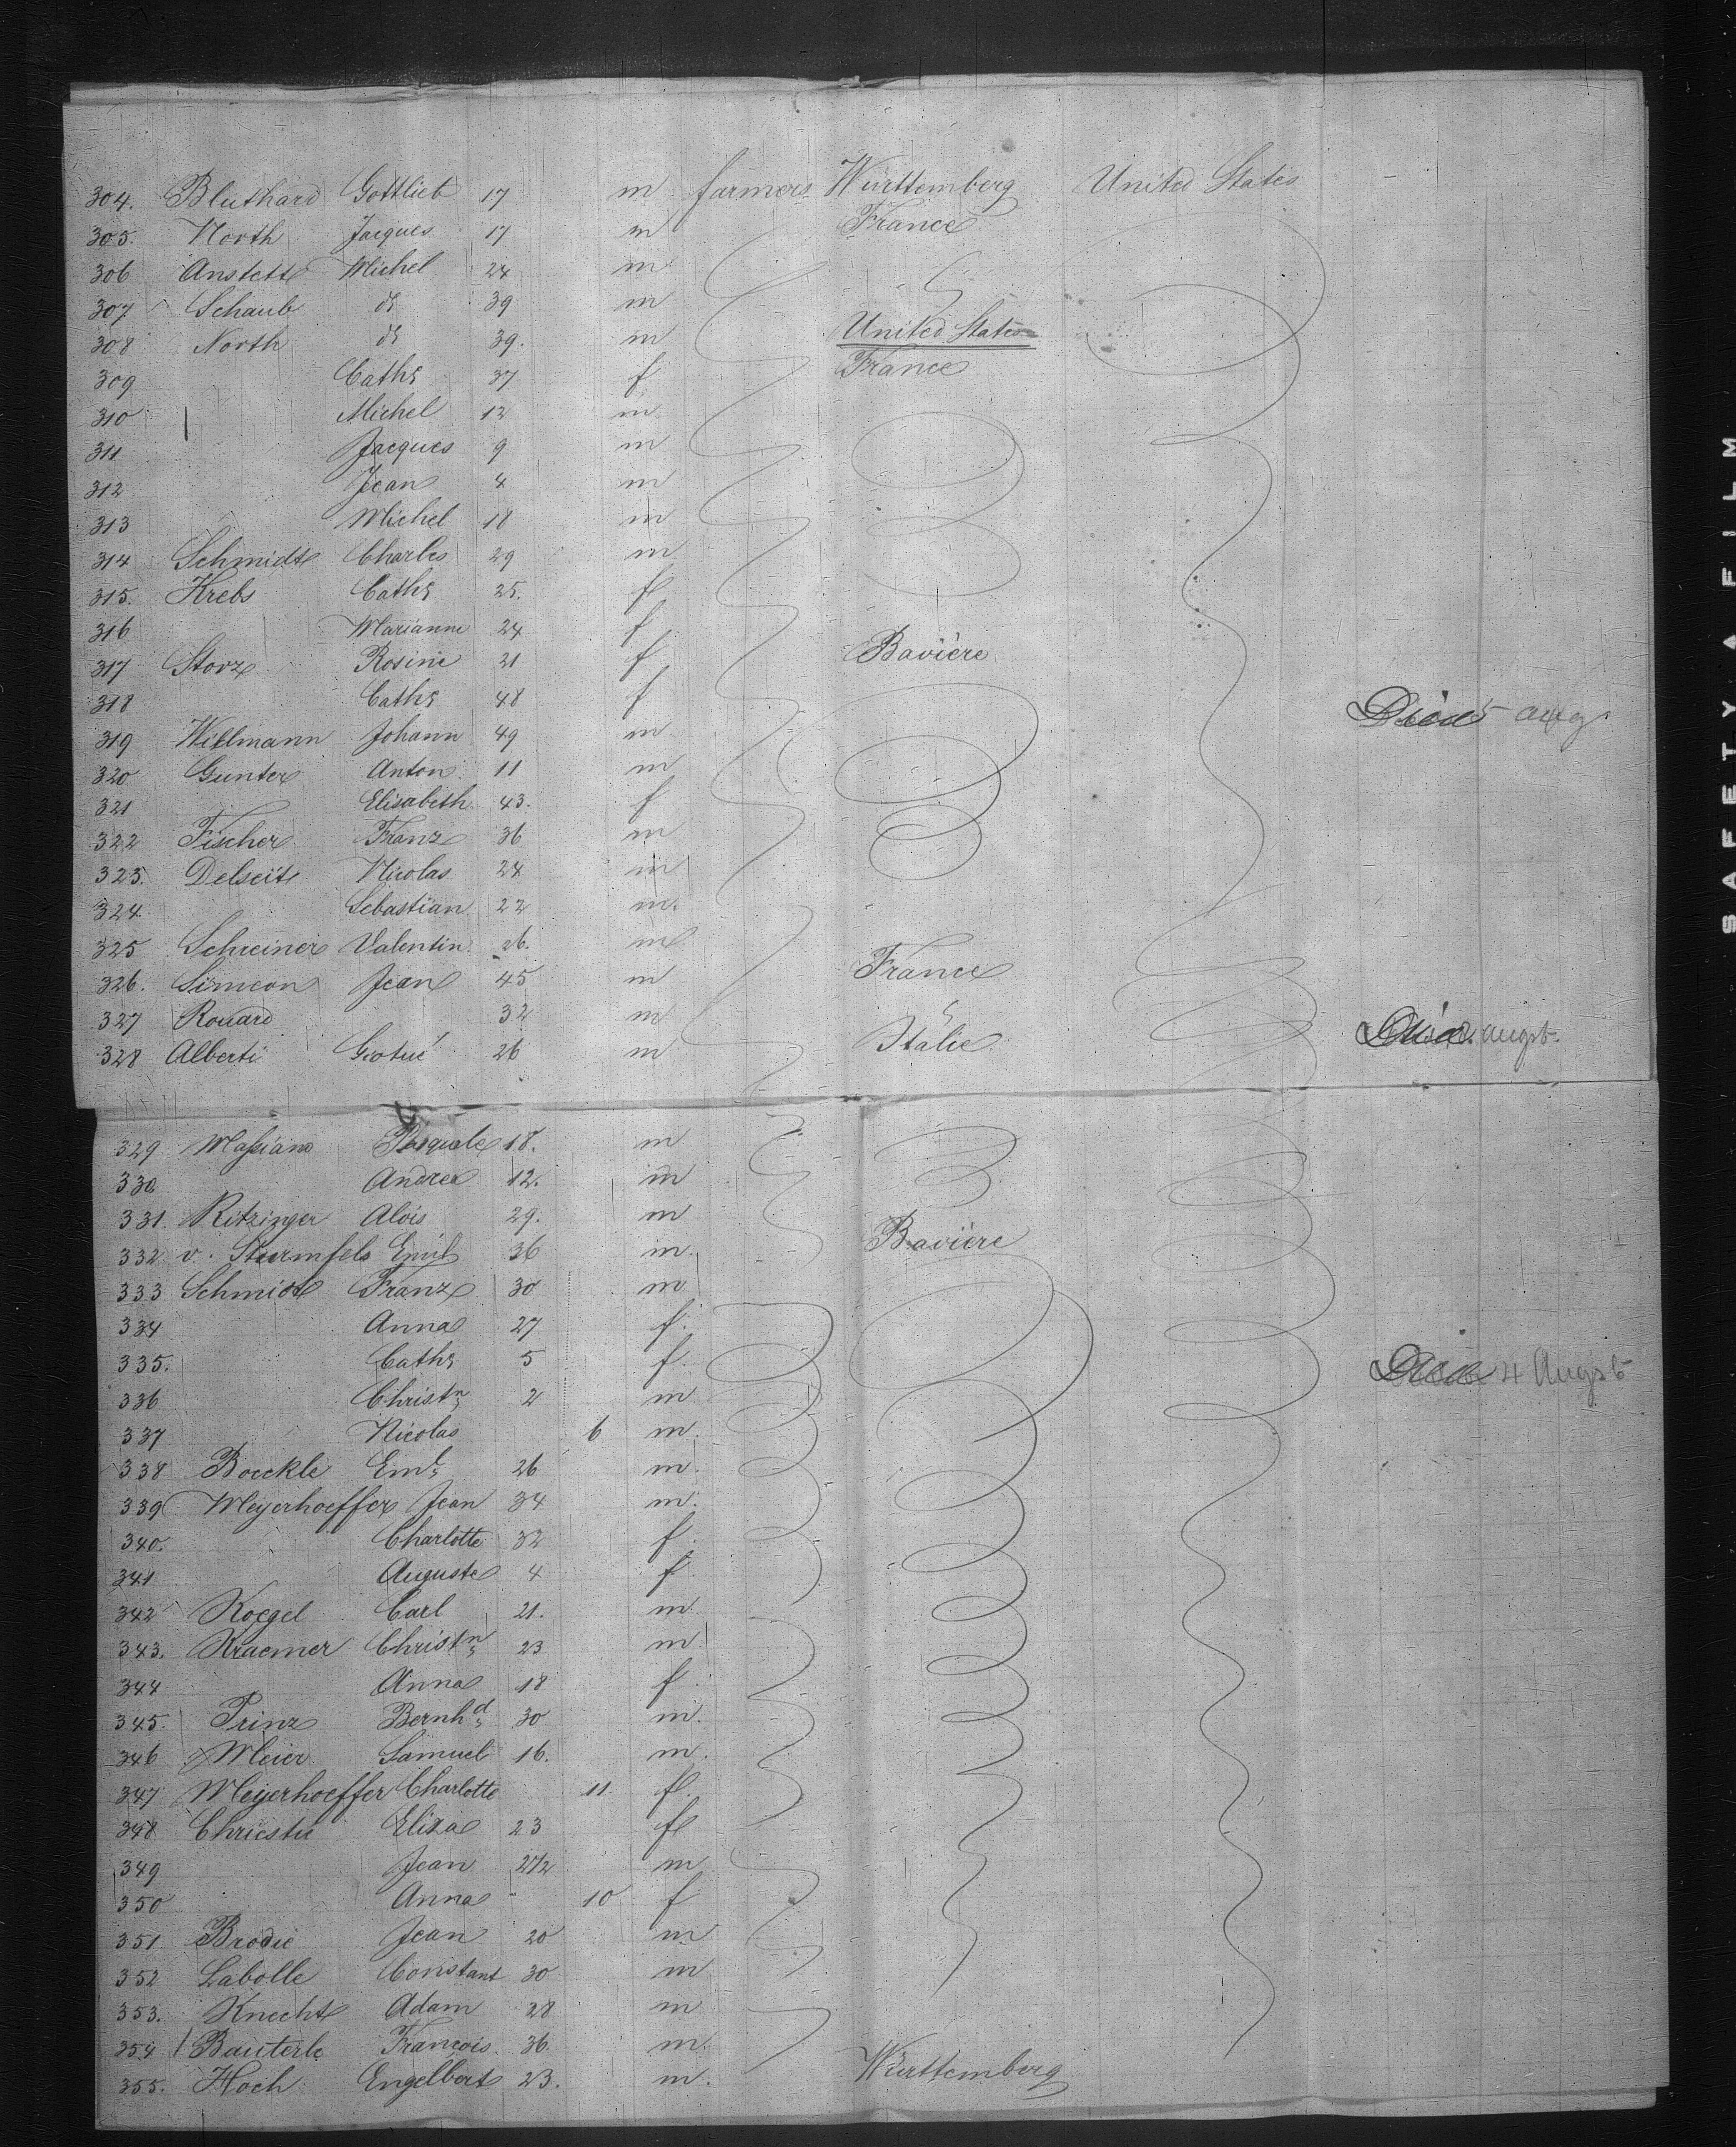 304. Bluthard Gottlieb 17 m farmers Württemberg United States
305. North Jacques 17 m France
306 Anstett Michel 24 m
307 Schaub do 39 m
308 North do 39. m United States
309 Cath: 37 f France
310 Michel 12 m
311 Jacques 9 m
312 Jean 4 m
313 Michel 18 m
314 Schmidt Charles 29 m
315. Krebs Cath: 25. f
316 Marianne 24 f
317 Storz Rosine 21 f Bavière
318 Cath: 48 f Died 5 aug.
319 Willmann Johann 49 m
320 Gunter Anton 11 m
321 Elisabeth 43. f
322 Fischer Franz 36 m
323. Delseit Nicolas 24 m
324 Sebastian 22 m.
325 Schreiner Valentin 26. m
326. Simeon Jean 45 m France
327 Rouard 32 m
328 Alberti 26 m Italie augst.
329 Massiano Pasquale 18. m
330 Andrea 12. m
331. Ritzinger Alois 29. m
332 v. Sturmfels Emil 36 m. Bavière
333 Schmidt Franz 30 m
334 Anna 27 f.
335. Cath: 5 f. Died 4 Augst
336 Christn: 2 m
337 Nicolas 6 m.
338 Boeckle Eml: 26 m.
339 Meyerhoeffer Jean 34 m.
340. Charlotte 32 f.
341 Auguste 4 f.
342 Koegel Carl 21. m
343. Kraemer Christn: 23 m
344 Anna 18 f.
345. Prinz Bernhd: 30 m.
346 Meier Samuel 16. m.
347 Meyerhoeffer Charlotte 11. f.
348 Chriestie Eliza 23 f
349 Jean 2 1/2 m
350 Anna " 10 f
351 Brodie Jean 20 m
352 Labolle Constant 30 m
353. Knecht Adam 28 m
354 Bauterle François. 36. m.
355. Hoch Engelbert 23. m. Württemberg
SAFETY FILM